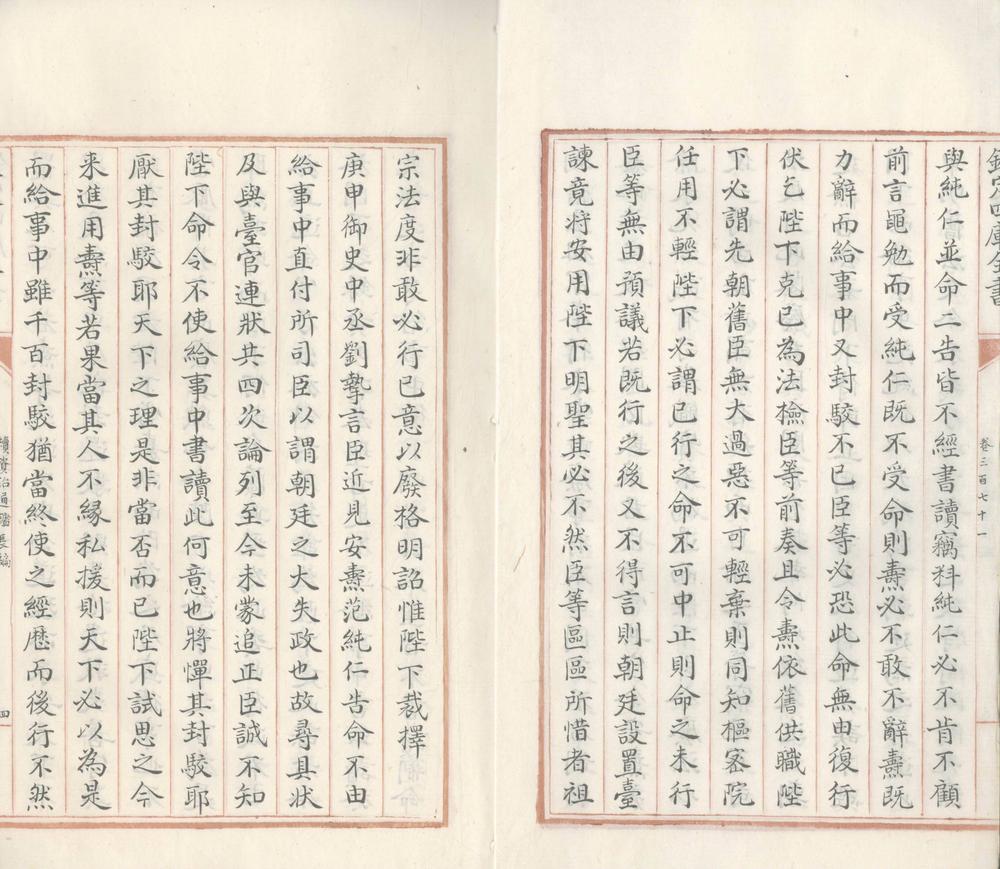 欽定四庫全書
卷三百七十一
與純仁並命二告皆不經書讀竊料純仁必不肯不顧
前言黽勉而受純仁既不受命則燾必不敢不辭燾既
力辭而給事中又封駮不已臣等必恐此命無由復行
伏乞陛下克已為法檢臣等前奏且令燾依舊供職陛
下必謂先朝舊臣無大過惡不可輕棄則同知樞密院
任用不輕陛下必謂已行之命不可中止則命之未行
臣等無由預議若既行之後又不得言則朝廷設置臺
諫竟將安用陛下明聖其必不然臣等區區所惜者祖
宗法度非敢必行已意以廢格明詔惟陛下裁擇
庚申御史中丞劉摯言臣近見安燾范純仁告命不由
給事中直付所司臣以謂朝廷之大失政也故尋具狀
及與臺官連狀共四次論列至今未蒙追正臣誠不知
陛下命令不使給事中書讀此何意也將憚其封駮耶
厭其封駮耶天下之理是非當否而已陛下試思之今
来進用燾等若果當其人不緣私援則天下必以為是
而給事中雖千百封駮猶當終使之經歷而後行不然
續資治通鑑長編
四